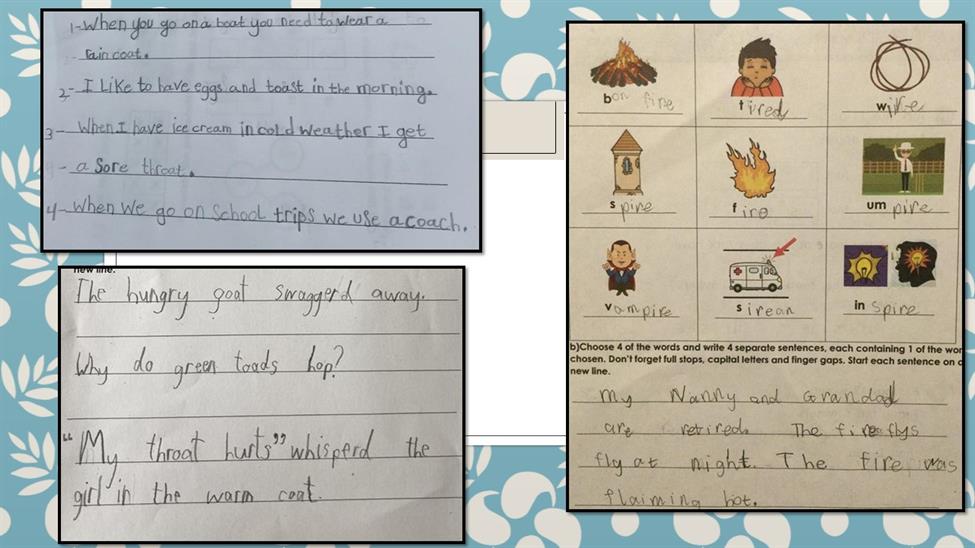 1- When you go on a boat you need to wear a
rain coat.
2- I Like to have eggs and toast in the morning.
3- When I have ice cream in cold weather I get
- a sore throat.
4- When we go on School trips we use a coach.
new line.
The hungry goat swaggerd away.
Why do green toads hop?
"My throat hurts" whisperd the
girl in the warm coat.
bon fire tired wire
spire fire umpire
vampire sirean inspire
b)Choose 4 of the words and write 4 separate sentences, each containing 1 of the
chosen. Don't forget full stops, capital letters and finger gaps. Start each sentence on
new line.
My Nanny and Grandad
are retired. The fireflys
fly at night. The fire was
flaiming hot.